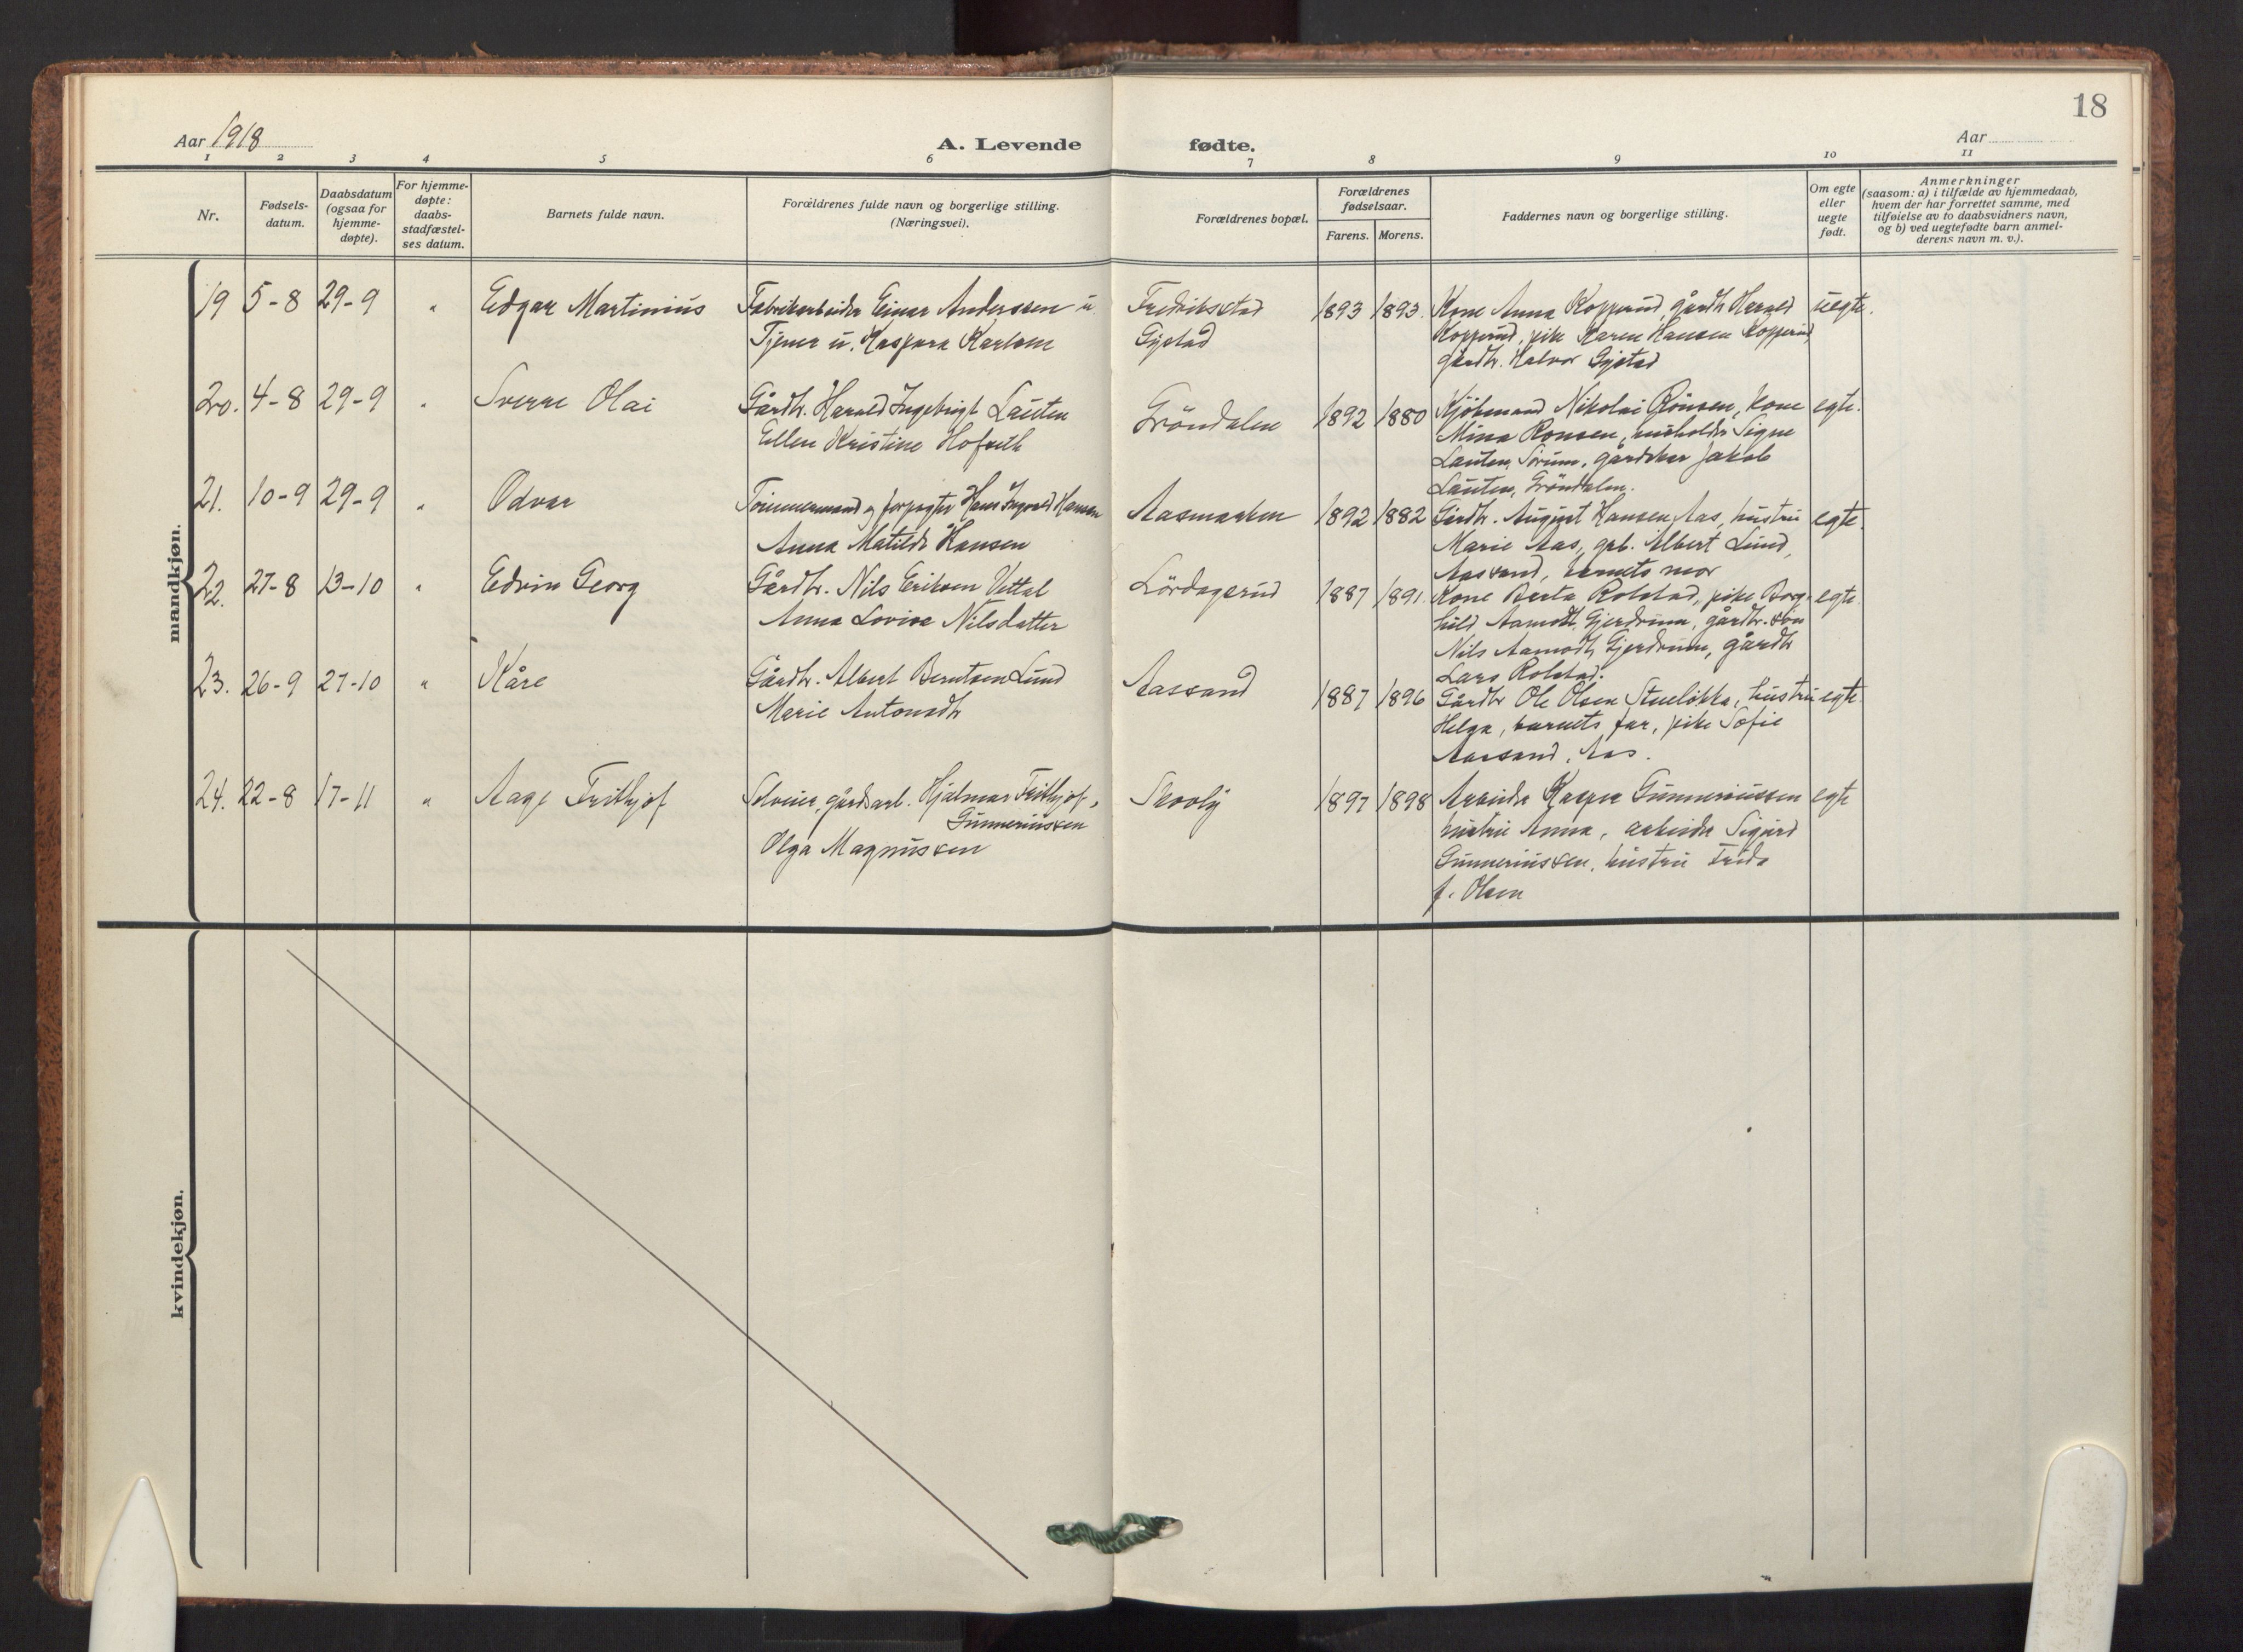 18
Aar 1918
A. Levende fødte.
Aar
1 2 3 4 5 6 7 8 9 10 11
Nr.
Fødsels-
datum.
Daabsdatum
(ogsaa for
hjemme-
døpte).
For hjemme-
døpte:
daabs-
stadfæstel-
ses datum.
Barnets fulde navn.
Forældrenes fulde navn og borgerlige stilling.
(Næringsvei).
Forældrenes bopæl.
Forældrenes
fødselsaar.
Farens. Morens.
Faddernes navn og borgerlige stilling.
Om egte
eller
uegte
født.
Anmerkninger
(saasom: a) i tilfælde av hjemmedaab,
hvem der har forrettet samme, med
tilføielse av to daabsvidners navn,
og b) ved uegtefødte barn anmel-
derens navn m. v.).
mandkjøn.
19 5-8 29-9 " Edgar Martinius Fabrikarbeider Einar Anderssen u. Fredriksstad 1893 1893. Kone Anna Kopperud, gårdbr Harald uegte.
Tjener u. Kaspara Karlsen Gystad Kopperud, pike Karen Hansen Kopperud,
gårdbr. Halvor Gystad
20. 4-8 29-9 " Sverre Olai Gårdbr. Harald Ingebrigt Lauten Gröndalen 1892 1880 Kjöbmand Nikolai Rönsen, kone egte.
Ellen Kristine Hofseth Mina Ronsen, husholder Signe
Lauten, Sörum, gårdbr Jakob
Lauten, Gröndalen.
21. 10-9 29-9 " Odvar Tömmermand og forpagter Hans Ingvald Hansen Aasmarken 1892 1882 Gårdbr. August Hansen Aas, hustru egte.
Anna Matilde Hansen Marie Aas, grb. Albert Lund,
Aassand, barnets mor
22. 27-8 13-10 " Edvin Georg Gårdbr. Nils Eriksen Vittal Lördagsrud 1887 1891. Kone Berta Rolstad, pike Borg- egte
Anna Lovise Nilsdatter hild Aamodt, Gjerdrum, gårdbr. sön
Nils Aamodt, Gjerdrum, gårdbr
Lars Rolstad.
23. 26-9 27-10 " Kåre Gårdbr. Albert Berntsen Lund Aassand 1887 1896 Gårdbr Ole Olsen Stuelökka, hustru egte.
Marie Antonsdtr Helga, barnets far, pike Sofie
Aassand, Aas.
24. 22-8 17-11 " Aage Frithjof Selveier, gårdsarb. Hjalmar Frithjof, Skovly 1897 1898 Arbeider Kasper Gunneriussen egte
Gunneriussen hustru Anna, arbeider Sigurd
Olga Magnussen Gunneriussen, hustru Frida
f. Olsen
kvindekjøn.